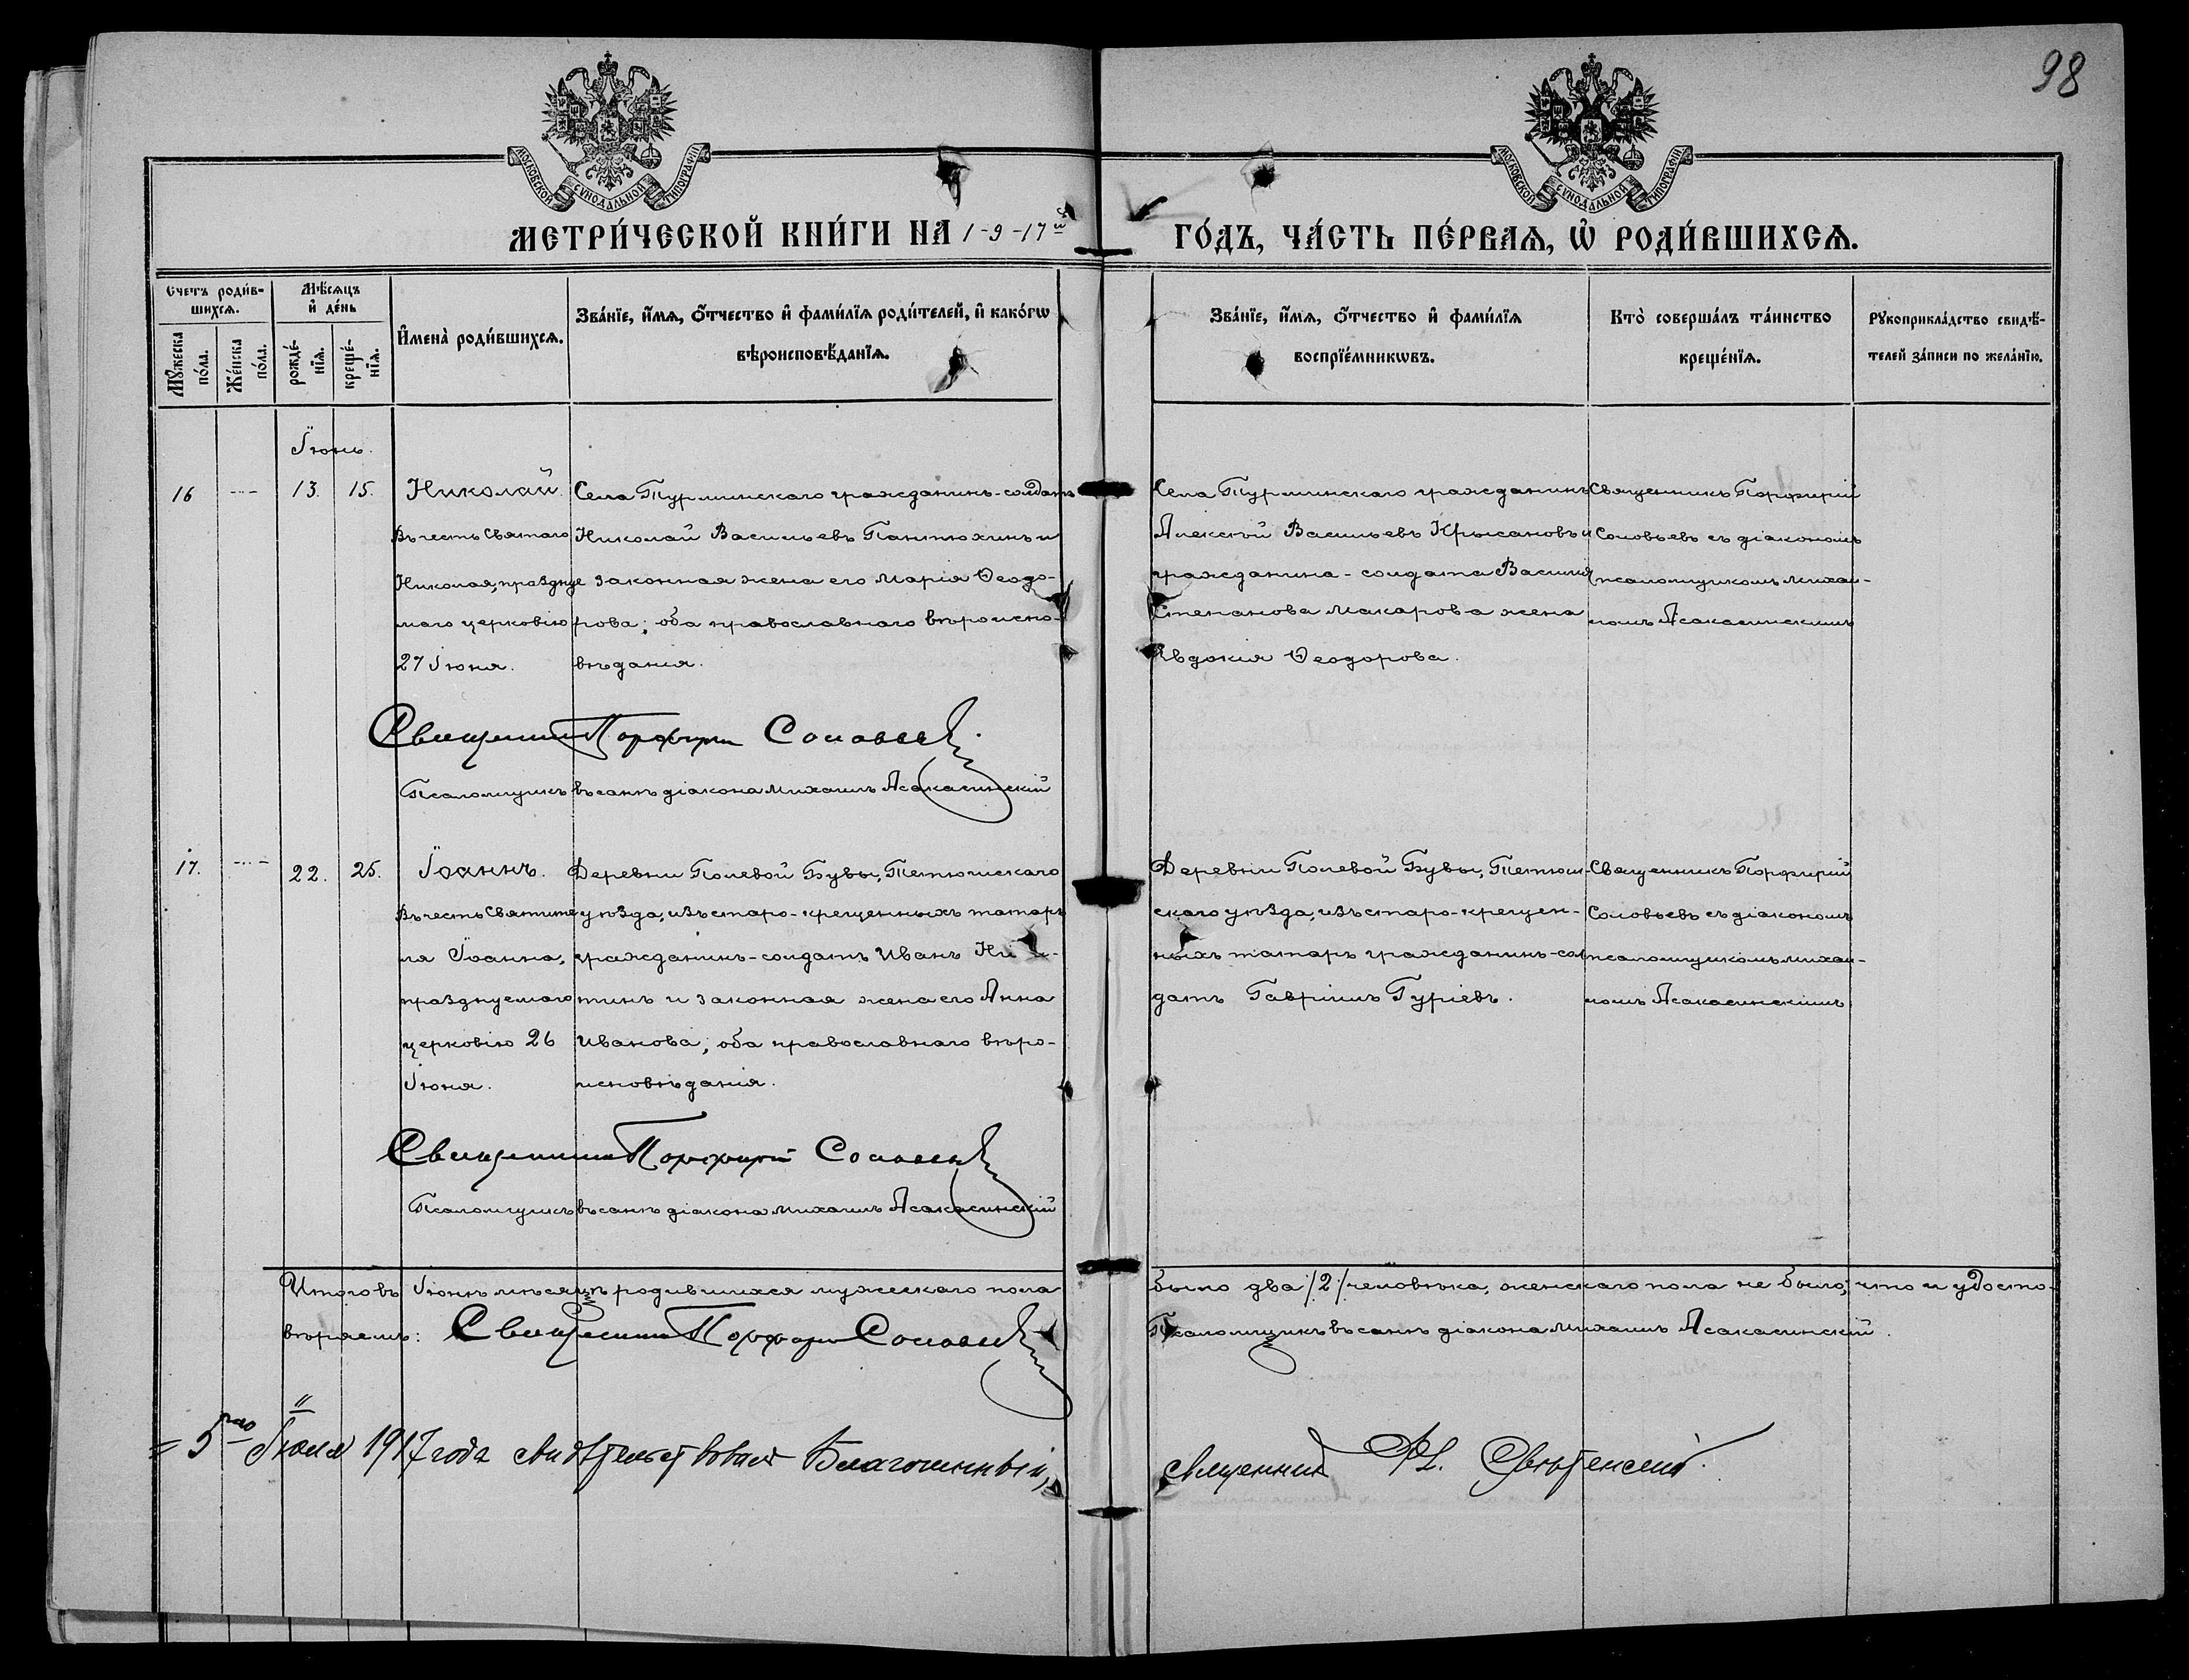 98
МОСКОВСКОЙ СѴНОДАЛЬНОЙ ТИПОГРАФІИ
МОСКОВСКОЙ СѴНОДАЛЬНОЙ ТИПОГРАФІИ
МЕТРИ́ЧЕСКОЙ КНИ́ГИ НА 1-9-17й ГО́ДЪ, ЧА́СТЬ ПЕ́РВАѦ, Ѡ РОДИ́ВШИХСѦ.
Счетъ роди́в-
шихсѧ.
Мꙋ́жеска по́ла.
Же́нска по́ла.
Мѣ́сѧцъ и҆ де́нь
рожде́-нїѧ.
креще́-нїѧ.
И҆мена̀ роди́вшихсѧ.
Зва́нїе, и҆́мѧ, ѻ҆́тчество и҆ фами́лїѧ роди́телей, и҆ како́гѡ
вѣроисповѣ́данїѧ.
Зва́нїе, и҆́мѧ, ѻ҆́тчество и҆ фами́лїѧ
воспрїе́мникѡвъ.
Кто̀ соверша́лъ та́инство
креще́нїѧ.
Рꙋкоприкла́дство свидѣ́-
телей за́писи по жела́нїю.
Іюнь.
16 --- 13. 15.
Николай.
Въ честь Святаго
Николая, праздну
маго церковію
27 Іюня.
Села Турминскаго гражданинъ-солдатъ
Николай Васильевъ Пантюхинъ и
е законная жена его Марія Ѳеодо-
рова; оба православнаго вѣроиспо-
вѣданія.
Села Турминскаго гражданинъ
Алексѣй Васильевъ Крысановъ и
гражданина-солдата Василія
Степанова Макарова жена
Евдокія Ѳеодорова.
Священникъ Порфирій
Соловьевъ съ діакономъ
псаломщикомъ Михаи-
ломъ Асакасинскимъ
Священникъ Порфирій Соловьевъ
Псаломщикъ въ санѣ діакона Михаилъ Асакасинскій
17. --- 22. 25.
Іоаннъ.
Въ честь Святите
ля Іоанна,
празднуемаго
церковію 26
Іюня.
Деревни Полевой Бувы, Тетюшскаго
уѣзда, изъ старо-крещенныхъ татаръ
гражданинъ-солдатъ Иванъ
и законная жена его Анна
Иванова; оба православнаго вѣро-
исповѣданія.
Деревни Полевой Бувы, Тетюш-
скаго уѣзда, изъ старо-крещен-
ныхъ татаръ гражданинъ-сол
датъ Гавріилъ Гуріевъ.
Священникъ Порфирій
Соловьевъ съ діакономъ
псаломщикомъ Михаи-
ломъ Асакасинскимъ
Священникъ Порфирій Соловьевъ
Псаломщикъ въ санѣ діакона Михаилъ Асакасинскій
Итого въ Іюнѣ мѣсяцѣ родившихся мужескаго пола было два /2/ человѣка, женскаго пола не было; что и удосто-
вѣряемъ: Священникъ Порфирій Соловьевъ
Псаломщикъ въ санѣ діакона Михаилъ Асакасинскій.
= 5го Іюля 1917 года свидѣтельствовалъ Благочинный,
священникъ